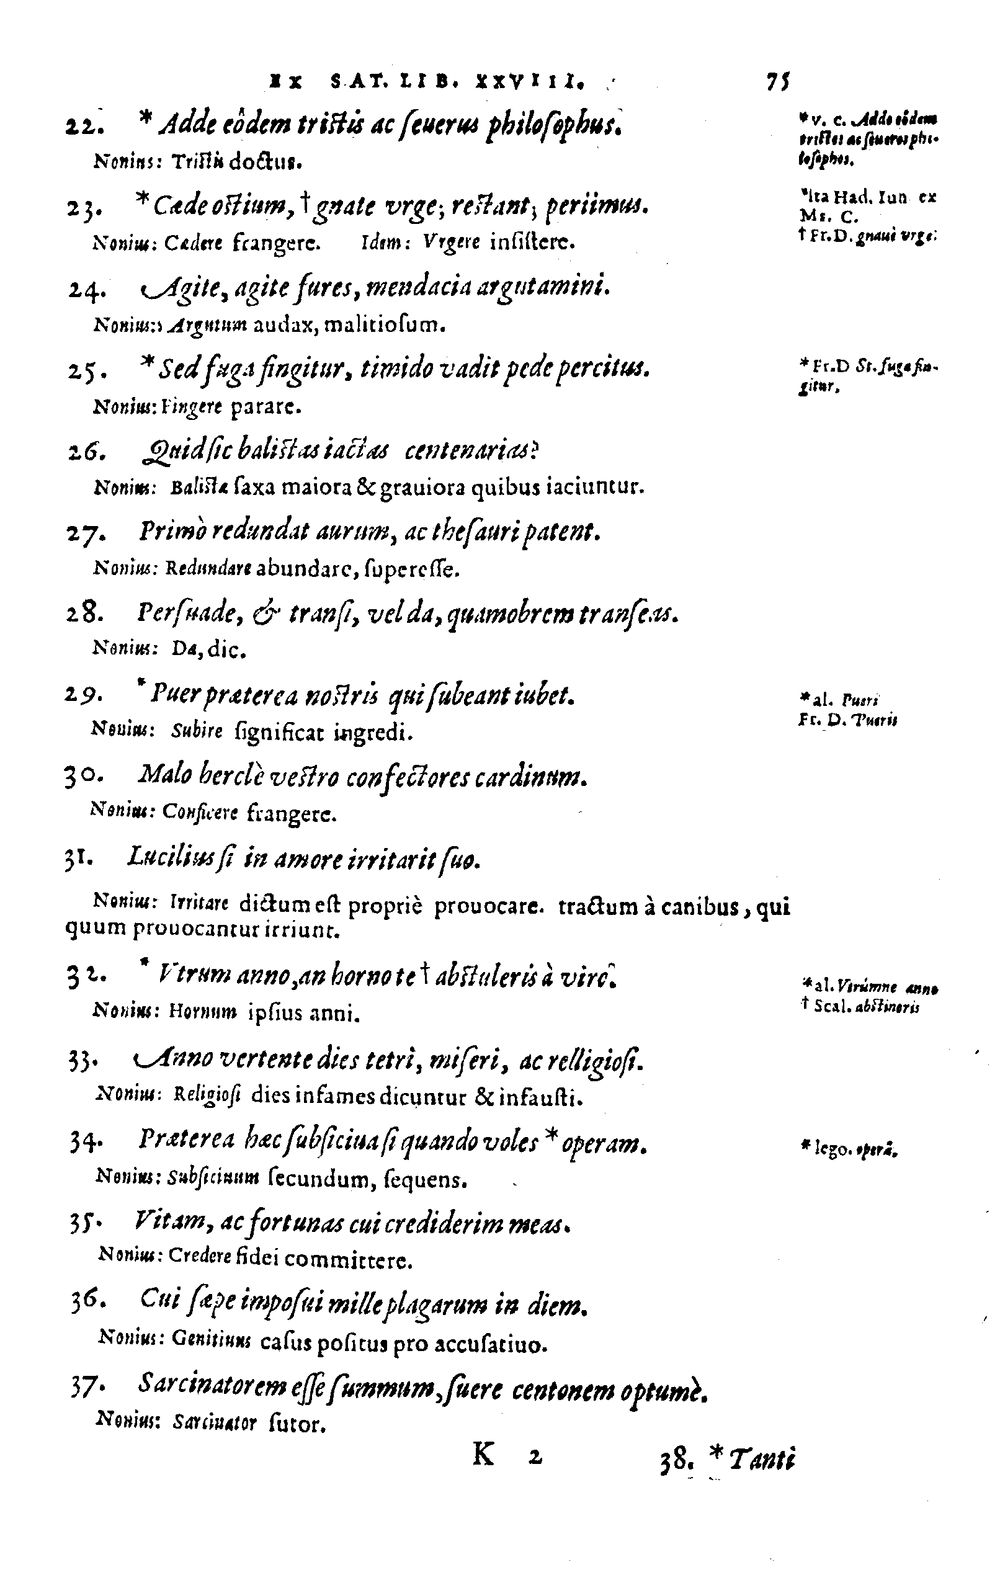 EX SAT. LIB. XXVIII. 75
22. * Adde eôdem tristis ac ſeuerus philoſophus.
Nonius: Tristis doctus.
* v. c. Adde eôdem
tristes ac ſeueros phi-
loſophos.
23. * Cæde ostium, † gnate vrge; restant; periimus.
Nonius: Cædere frangere. Idem: Vrgere inſiſtere.
*ita Had. Iun ex
Ms. C.
† Fr.D. gnaui vrge.
24. Agite, agite fures, mendacia argutamini.
Nonius: Argutum audax, malitioſum.
25. * Sed fuga fingitur, timido vadit pede percitus.
Nonius: Fingere parare.
* Fr.D St. fuga fin-
gitur.
26. Quid ſic balistas iactas centenarias?
Nonius: Balista ſaxa maiora & grauiora quibus iaciuntur.
27. Primò redundat aurum, ac theſauri patent.
Nonius: Redundare abundare, ſupereſſe.
28. Perſuade, & tranſi, vel da, quamobrem tranſeas.
Nonius: Da, dic.
29. * Puer præterea nostris qui ſubeant iubet.
Nonius: Subire ſignificat ingredi.
* al. Pueri
Fr. D. Pueris
30. Malo herclè vestro confectores cardinum.
Nonius: Conficere frangere.
31. Lucilius ſi in amore irritarit ſuo.
Nonius: Irritare dictum eſt propriè prouocare. tractum à canibus, qui
quum prouocantur irriunt.
32. * Vtrum anno, an horno te † abstuleris à viro.
Nonius: Hornum ipſius anni.
* al. Vtrúmne anno
† Scal. abstineris
33. Anno vertente dies tetri, miſeri, ac relligioſi.
Nonius: Religioſi dies infames dicuntur & infauſti.
34. Præterea hæc ſubſiciua ſi quando voles * operam.
Nonius: Subſiciuum ſecundum, ſequens.
* lego. operâ.
35. Vitam, ac fortunas cui crediderim meas.
Nonius: Credere fidei committere.
36. Cui ſæpe impoſui mille plagarum in diem.
Nonius: Genitiuus caſus poſitus pro accuſatiuo.
37. Sarcinatorem eſſe ſummum, ſuere centonem optumè.
Nonius: Sarcinator ſutor.
K 2 38. * Tanti